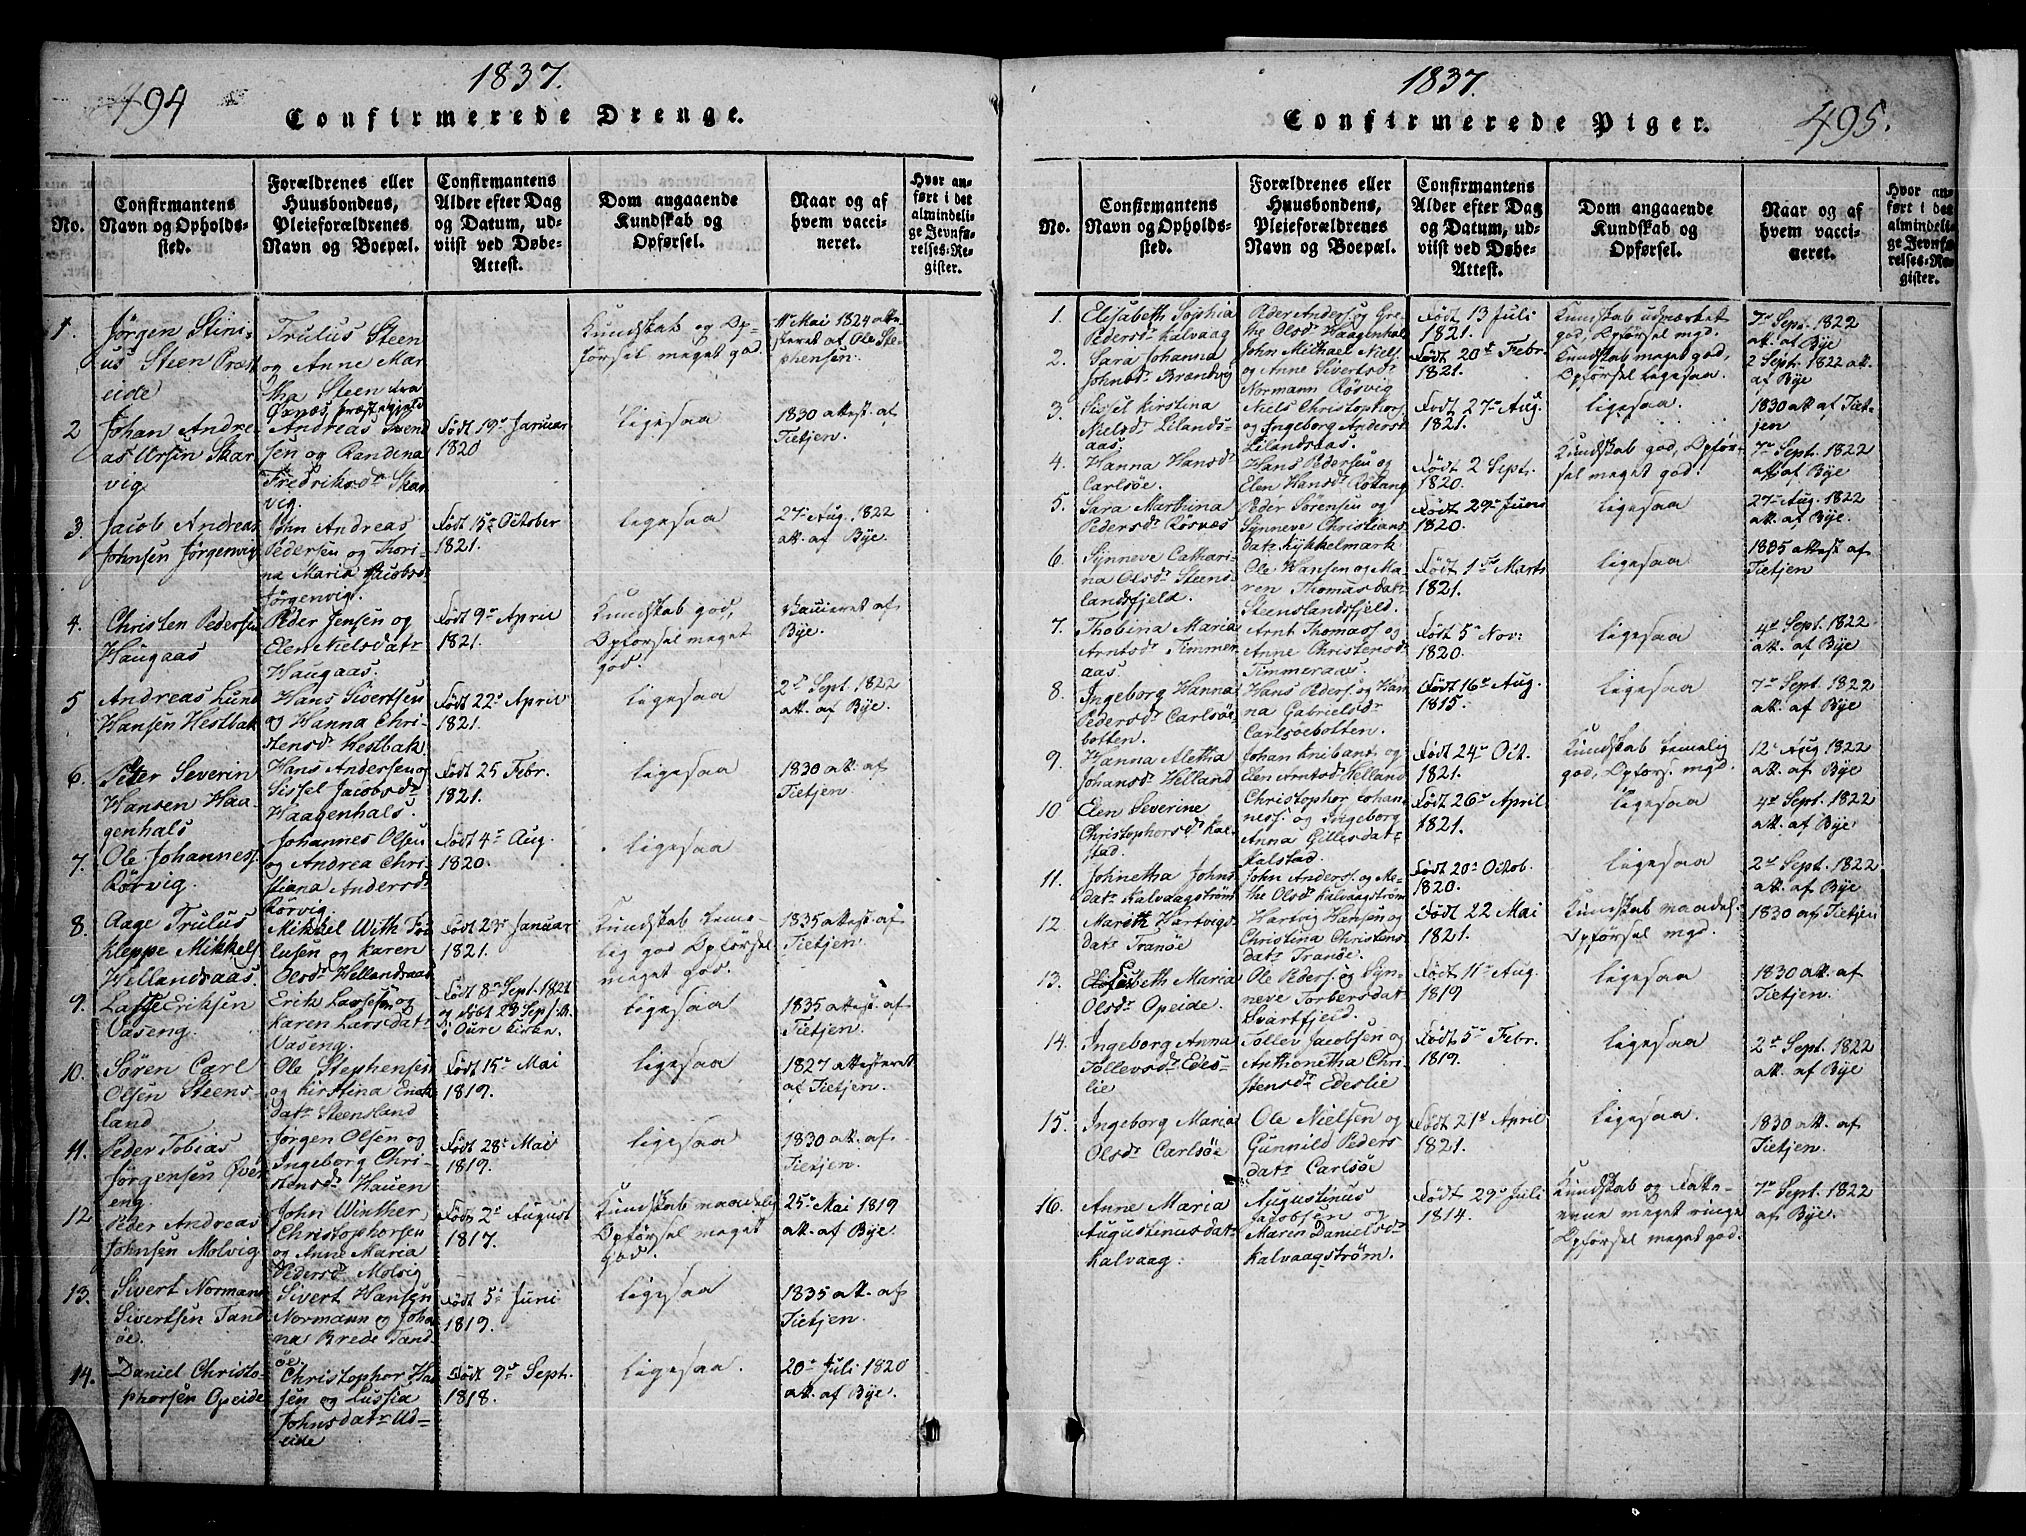 494
1837.
Confirmerede Drenge.
No.
Confirmantens
Navn og Opholds-
sted.
Forældrenes eller
Huusbondens,
Pleieforældrenes
Navn og Boepæl.
Confirmantens
Alder efter Dag
og Datum, ud-
viist ved Døbe-
Attest.
Dom angaaende
Kundskab og
Opførsel.
Naar og af
hvem vacci-
neret.
Hvor an-
ført i det
almindeli-
ge Jevnfø-
relses-Re-
gister.
1.
Jørgen Stini-
us Steen Præst
eide
Trulus Steen
og Anne Mar
tha Steen fra
Øxnæs præstegjeld
Kundskab og Op-
førsel meget god.
11te Mai 1824 atte-
steret af Ole Ste-
phensen
2
Johan Andre-
as Ursin Skar-
vig
Andreas Svend
sen og Randina
Fredriksdr Skar
vig.
Født 19de Januar
1820
ligesaa
1830 attest. af
Tietjen.
3.
Jacob Andreas
Johnsen Jørgenvig
John Andreas
Pedersen og Thori-
na Maria Jacobsdr
Jørgenvig.
Født 15de October
1821.
ligesaa
27de Aug. 1822
att. af Bye.
4.
Christen Pedersen
Haugaas
Peder Jensen og
Elen Nielsdatr
Haugaas.
Født 9de April
1821.
Kundskab god,
Opførsel meget
god.
Vaccineret af
Bye.
5
Andreas Lund
Hansen Hestbak
Hans Sivertsen
og Hanna Chri-
stensdr Hestbak.
Født 22de April
1821.
ligesaa
2de Sept. 1822
att. af Bye.
6.
Peter Severin
Hansen Haa-
genhals
Hans Andersen og
Sissel Jacobsdr
Haagenhals.
Født 25 Febr.
1821.
ligesaa
1830 att. af
Tietjen.
7.
Ole Johanness.
Rørvig.
Johannes Olsen
og Andrea Chri-
stiana Andersdr
Rørvig
Født 4de Aug.
1820.
ligesaa
8.
Aage Trulus
Kleppe Mikkels
Hellandsaas.
Mikkel With Tru
lusen og Karen
Olsdr Hellandsaas
Født 23de Januar
1821.
Kundskab teme-
lig god Opførsel
meget god.
1835 attest af
Tietjen.
9.
Lasse Eriksen
Vaseng.
Erik Larssen og
Karen Larsdatr
Vaseng.
Født 8de Sept. 1821
og døbt 23 Sept. s. A.
i Oure Kirke.
ligesaa
1835 attest. af
Tietjen.
10.
Søren Carl
Olsen Steens-
land
Ole Stephensen
og Kirstina Enok
datr Steensland
Født 15de Mai
1819.
ligesaa
1827 attesteret
af Tietjen.
11.
Peder Tobias
Jørgensen Øver
eng
Jørgen Olsen og
Ingeborg Chri-
stensdr Hauen
Født 28de Mai
1819.
ligesaa
1830 att. af
Tietjen.
12
Peder Andreas
Johnsen Molvig
John Winther
Christophorsen
og Anne Maria
Pedersdr Molvig
Født 2de August
1817.
Kundskab maadelig
Opførsel meget
god.
25de Mai 1819
att. af Bye
13.
Sivert Normann
Sivertsen Tand
öe.
Sivert Hansen
Normann og Joha
na Brede Tand
öe.
Født 5de Juni
1819.
ligesaa
1835 att. af
Tietjen.
14.
Daniel Christo-
phorsen Opeide
Christophor Han
sen og Lussia
Johnsdatr Ud-
eide
Født 9de Sept.
1818.
ligesaa.
20de Juli 1820
att. af Bye.
1837.
Confirmerede Piger.
495.
No.
Confirmantens
Navn og Opholds-
sted.
Forældrenes eller
Huusbondens,
Pleieforældrenes
Navn og Boepæl.
Confirmantens
Alder efter Dag
og Datum, ud-
viist ved Døbe-
Attest.
Dom angaaende
Kundskab og
Opførsel.
Naar og af
hvem vacci-
neret.
Hvor an-
ført i det
almindeli-
ge Jevnfø-
relses-Re-
gister.
1.
Elisabeth Sophia
Pedersdr Kalvaag
Peder Anders. og Gre-
the Olsdr Haagenhal
Født 13 Juli
1821.
Kundskab udmærket
god, Opførsel mgd.
7de Sept. 1822
att. af Bye
2.
Sara Johanna
Johnsdr Brændvig
John Michael Niels
og Anne Sivertsdr
Normann Røsvig
Født 20de Febr.
1821.
Kundskab meget god,
Opførsel ligesaa.
2 Septr. 1822 att.
af Bye
3.
Sissel Kirstina
Nielsdr Lilands-
aas.
Niels Christophers.
og Ingeborg Andersd
Lilandsaas.
Født 27de Aug.
1821.
ligesaa.
1830 att af Tiet-
jen
4.
Hanna Hansdr
Carlsöe.
Hans Pedersen og
Elen Hansdr Røttang
Født 2 Sept.
1820.
Kundskab god, Opfør-
sel meget god.
7de Sept. 1822
att af Bye
5.
Sara Marthina
Pedersdr Rösnæs
Peder Sörensen og
Synneve Christians
datr Kykkelmark
Født 29de Juni
1820.
ligesaa
27de Aug. 1822
att. af Bye.
6.
Synneve Cathari-
na Olsdr Steens-
landsfjeld.
Ole Hansen og Ma-
ren Thomasdatr
Steenslandsfjeld.
Født 1ste Marts
1821.
ligesaa
1835 attest af
Tietjen
7.
Thobina Maria
Arntsdr Timmer
aas.
Arnt Thomass. og
Anne Christensdr
Timmeraas
Født 5 Nov:
1820.
ligesaa
4de Sept. 1822
att. af Bye
8.
Ingeborg Hanna
Pedersdr Carlsöe-
botten.
Hans Peders. og Han
na Gabrielsdr
Carlsöebotten.
Født 16de Aug.
1815.
ligesaa
7de Sept. 1822
att. af Bye
9.
Hanna Aletha
Johansdr Helland
Johan Knibant og
Elen Arntsdr Helland
Født 24de Oct.
1821.
Kundskab temelig
god, Opførs. mgd.
12te Aug 1822
att. af Bye
10
Elen Severine
Christophorsdr Kal-
stad.
Christophor Johan
ness. og Ingeborg
Anna Gillesdatr
Kalstad.
Født 26de April
1821.
ligesaa
4de Sept. 1822
att. af Bye
11.
Johnetha Johns
datr Kalvaagström
John Anders. og Me-
the Olsdr Kalvaagström
Født 20de Octob.
1820.
ligesaa
2de Sept. 1822
att. af Bye
12.
Marith Hartvigs
datr Tranöe
Hartvig Hansen og
Christina Christens
datr Tranöe.
Født 22 Mai
1821.
Kundskab maadel.
Opførsel mgd.
1830 af Tietjen
13.
Elisabeth Maria
Olsdr Opeide.
Ole Peders. og Syn-
neve Torbersdatr
Svartfjeld.
Født 11te Aug.
1819
ligesaa
1830 att. af
Tietjen.
14.
Ingeborg Anna
Tollevsdr Edes-
lie
Tollev Jacobsen og
Anthonetha Chri-
stensdr Edeslie
Født 5de Febr.
1819.
ligesaa
2de Sept. 1822
att. af Bye
15.
Ingeborg Maria
Olsdr Carlsöe
Ole Nielsen og
Gunnild Peders
datr Carlsöe
Født 21de April
1821.
ligesaa.
1830 att. af
Tietjen.
16.
Anne Maria
Augustinusdatr
Kalvaag.
Augustinus
Jacobsen og
Maren Danielsdr
Kalvaagström.
Født 29de Juli
1814.
Kundskab og Fatte-
evne meget ringe
Opførsel meget god.
7de Sept. 1822
af Bye.